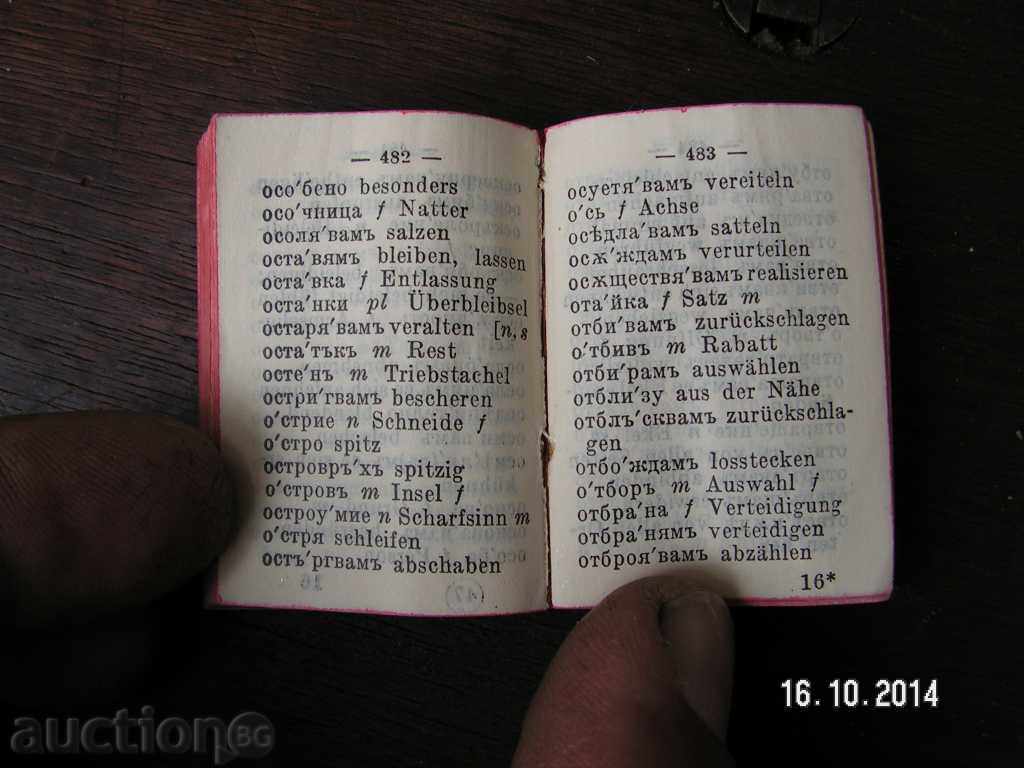 — 482 —
осо'бено besonders
осо'чница f Natter
осоля'вамъ salzen
оста'вямъ bleiben, lassen
оста'вка f Entlassung
оста'нки pl Überbleibsel
остаря'вамъ veralten [n, s
оста'тъкъ m Rest
осте'нъ m Triebstachel
остри'гвамъ bescheren
о'стрие n Schneide f
о'стро spitz
островръ'хъ spitzig
о'стровъ m Insel f
остроу'мие n Scharfsinn m
о'стря schleifen
остъ'ргвамъ abschaben
— 483 —
осуетя'вамъ vereiteln
о'сь f Achse
осѣдла'вамъ satteln
осѫ'ждамъ verurteilen
осѫществя'вамъ realisieren
ота'йка f Satz m
отби'вамъ zurückschlagen
о'тбив​ъ m Rabatt
отби'рамъ auswählen
отбли'зу aus der Nähe
отблъ'сквамъ zurückschla-
gen
отбо'ждамъ losstecken
о'тборъ m Auswahl f
отбра'на f Verteidigung
отбра'нямъ verteidigen
отброя'вамъ abzählen
16*
16.10.2014
auctionBG